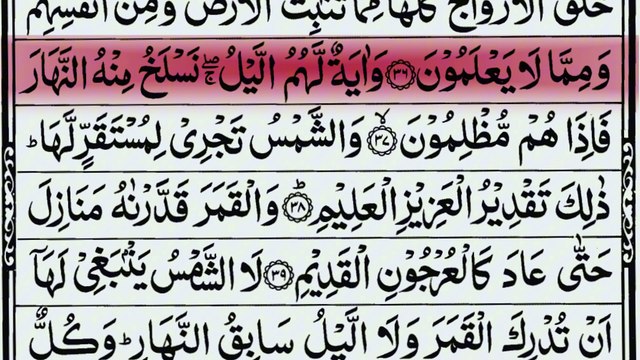 خَلَقَ الْاَزْوَاجَ كُلَّهَا مِمَّا تُنْۢبِتُ الْاَرْضُ وَمِنْ اَنْفُسِهِمْ
وَمِمَّا لَا يَعْلَمُوْنَ ۝۳۶ وَاٰيَةٌ لَّهُمُ الَّيْلُ ۖۚ نَسْلَخُ مِنْهُ النَّهَارَ
فَاِذَا هُمْ مُّظْلِمُوْنَ ۝۳۷ وَالشَّمْسُ تَجْرِيْ لِمُسْتَقَرٍّ لَّهَا ؕ
ذٰلِكَ تَقْدِيْرُ الْعَزِيْزِ الْعَلِيْمِ ؕ ۝۳۸ وَالْقَمَرَ قَدَّرْنٰهُ مَنَازِلَ
حَتّٰى عَادَ كَالْعُرْجُوْنِ الْقَدِيْمِ ۝۳۹ لَا الشَّمْسُ يَنْۢبَغِيْ لَهَاۤ
اَنْ تُدْرِكَ الْقَمَرَ وَلَا الَّيْلُ سَابِقُ النَّهَارِ ؕ وَكُلٌّ